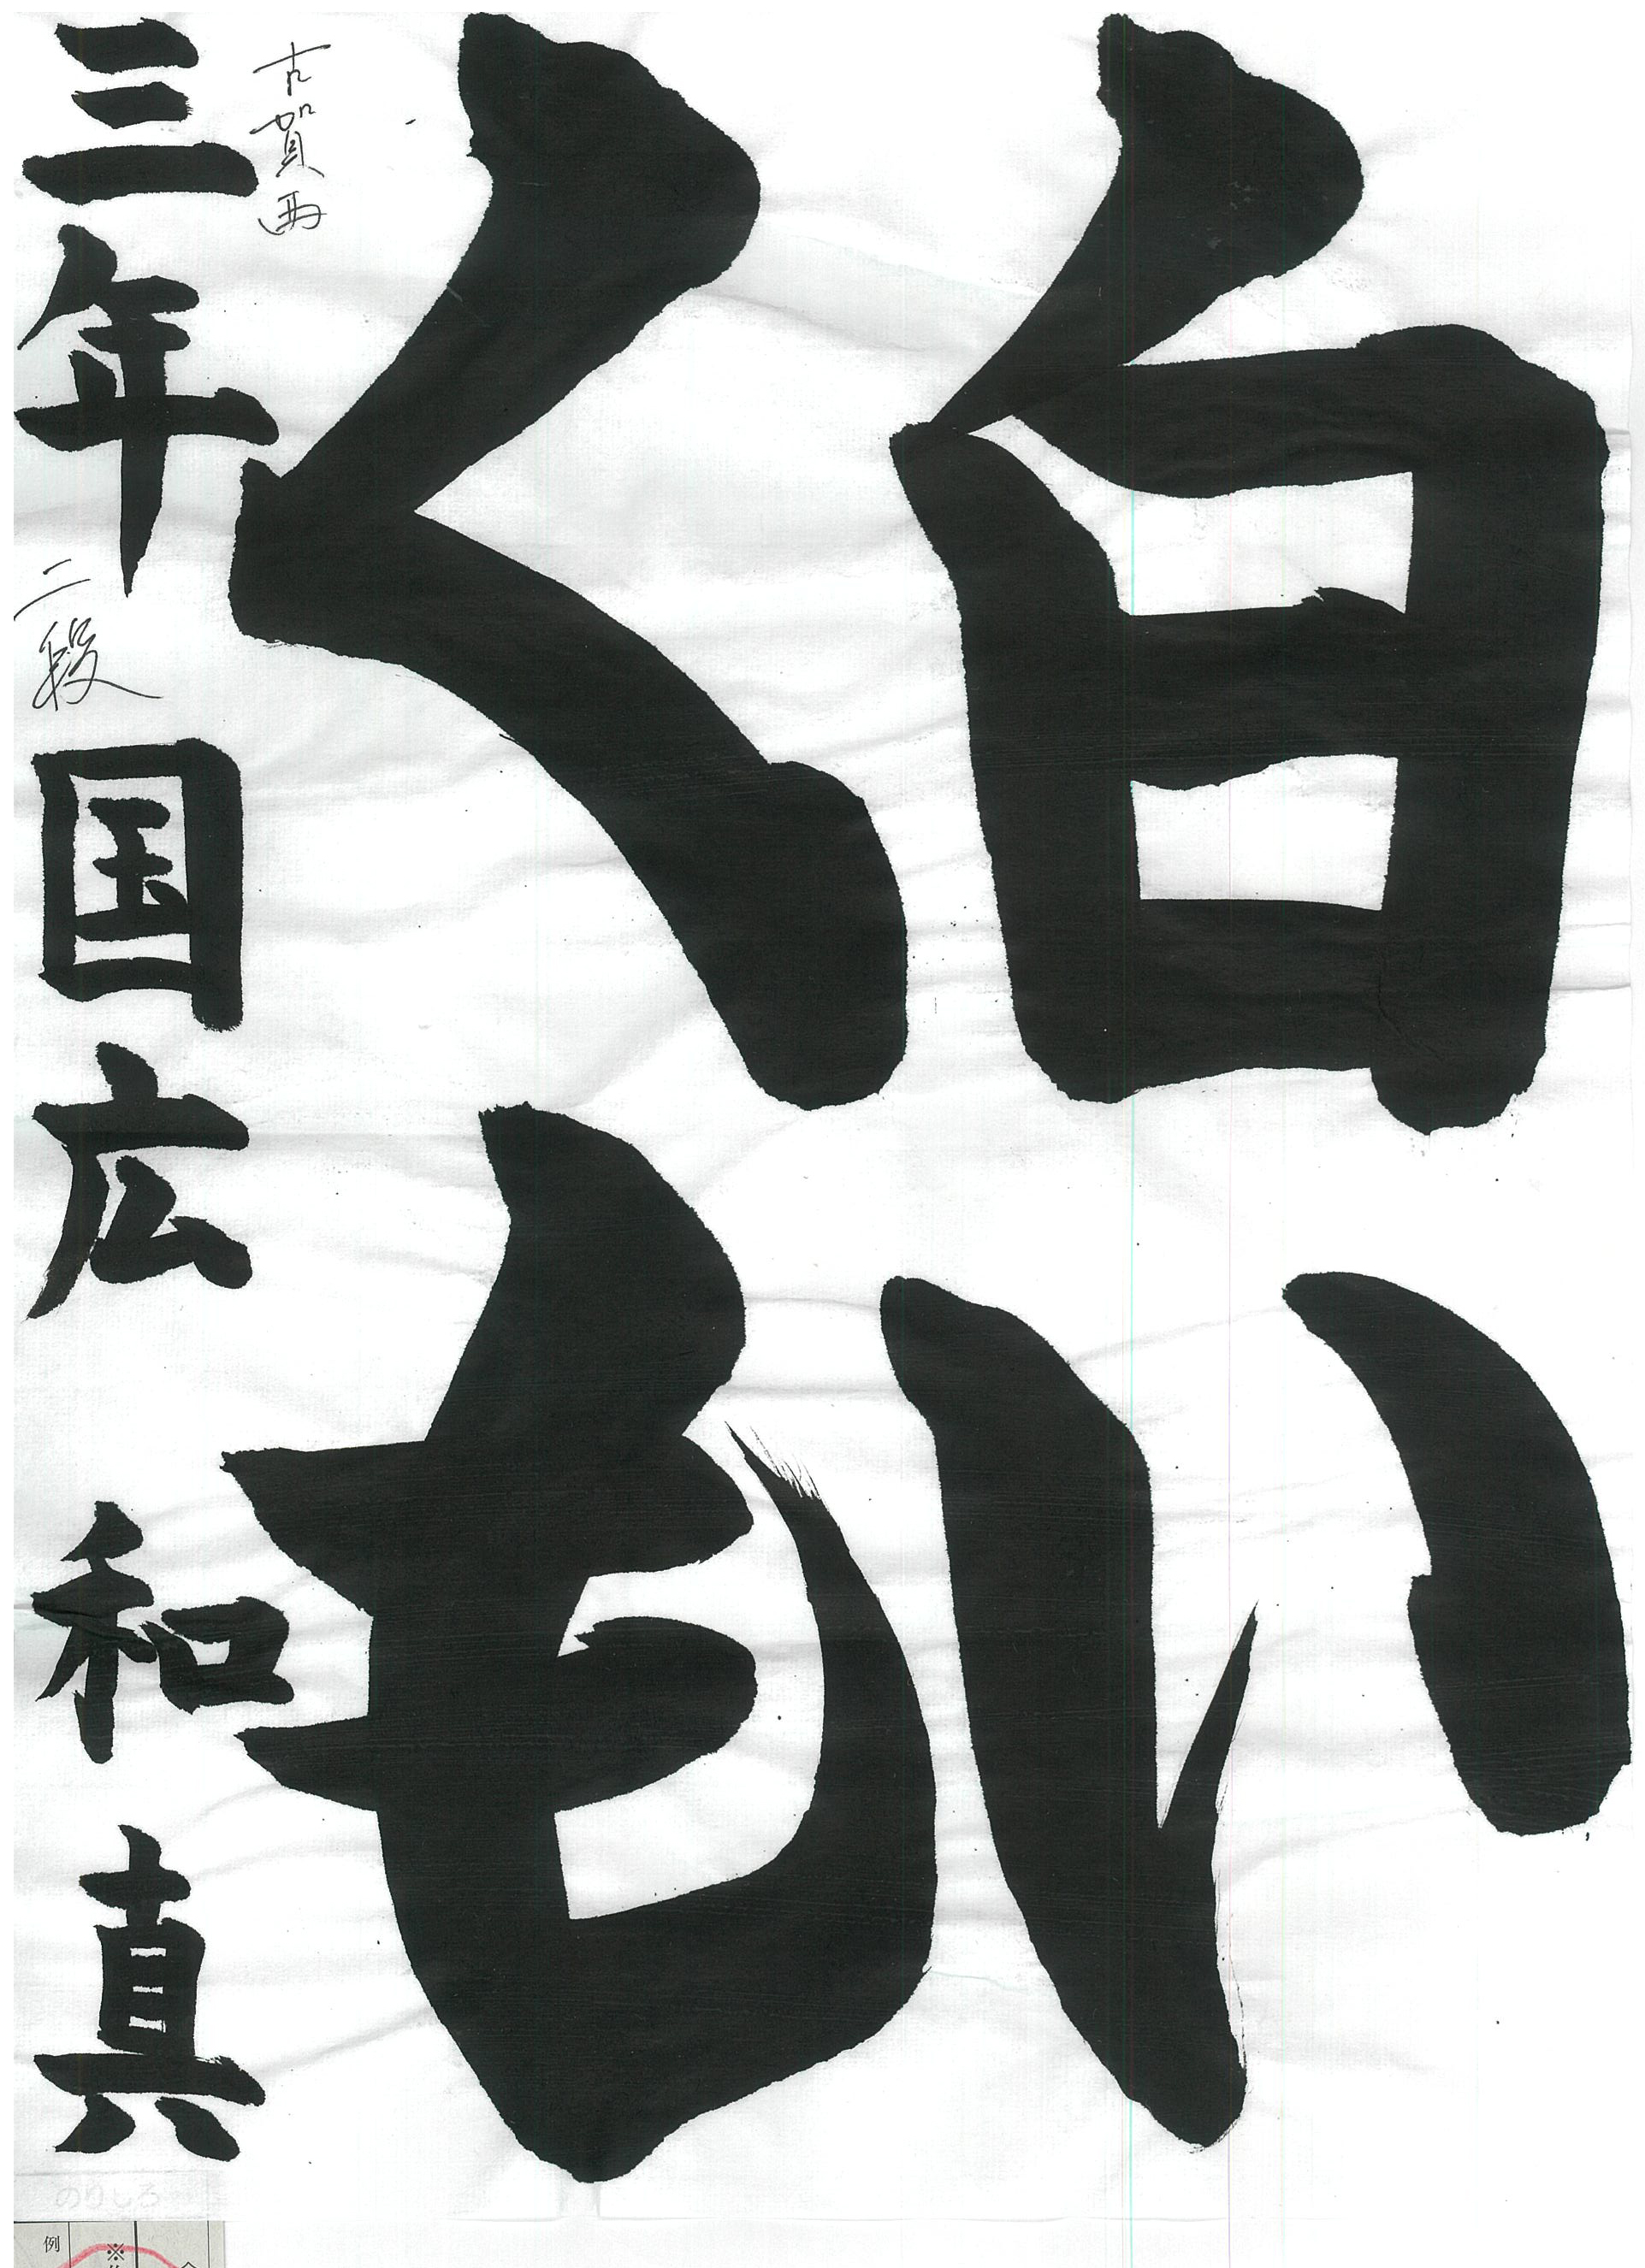 白い
くも
古賀西
三年 二段 国広 和真
のりしろ
※
例